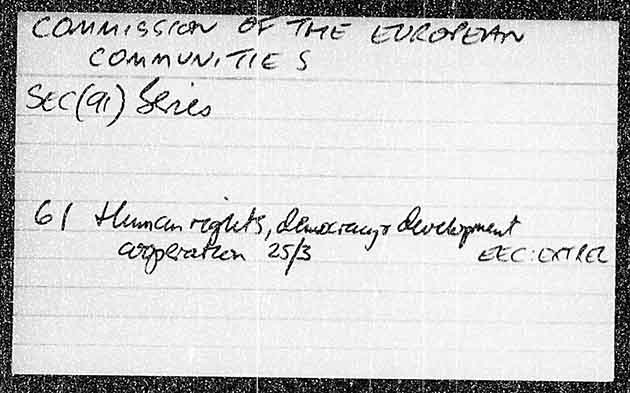 COMMISSION OF THE EUROPEAN
COMMUNITIES
SEC(91) Series
61 Human rights, democracy & development
cooperation 25/3 EEC:EXTREL